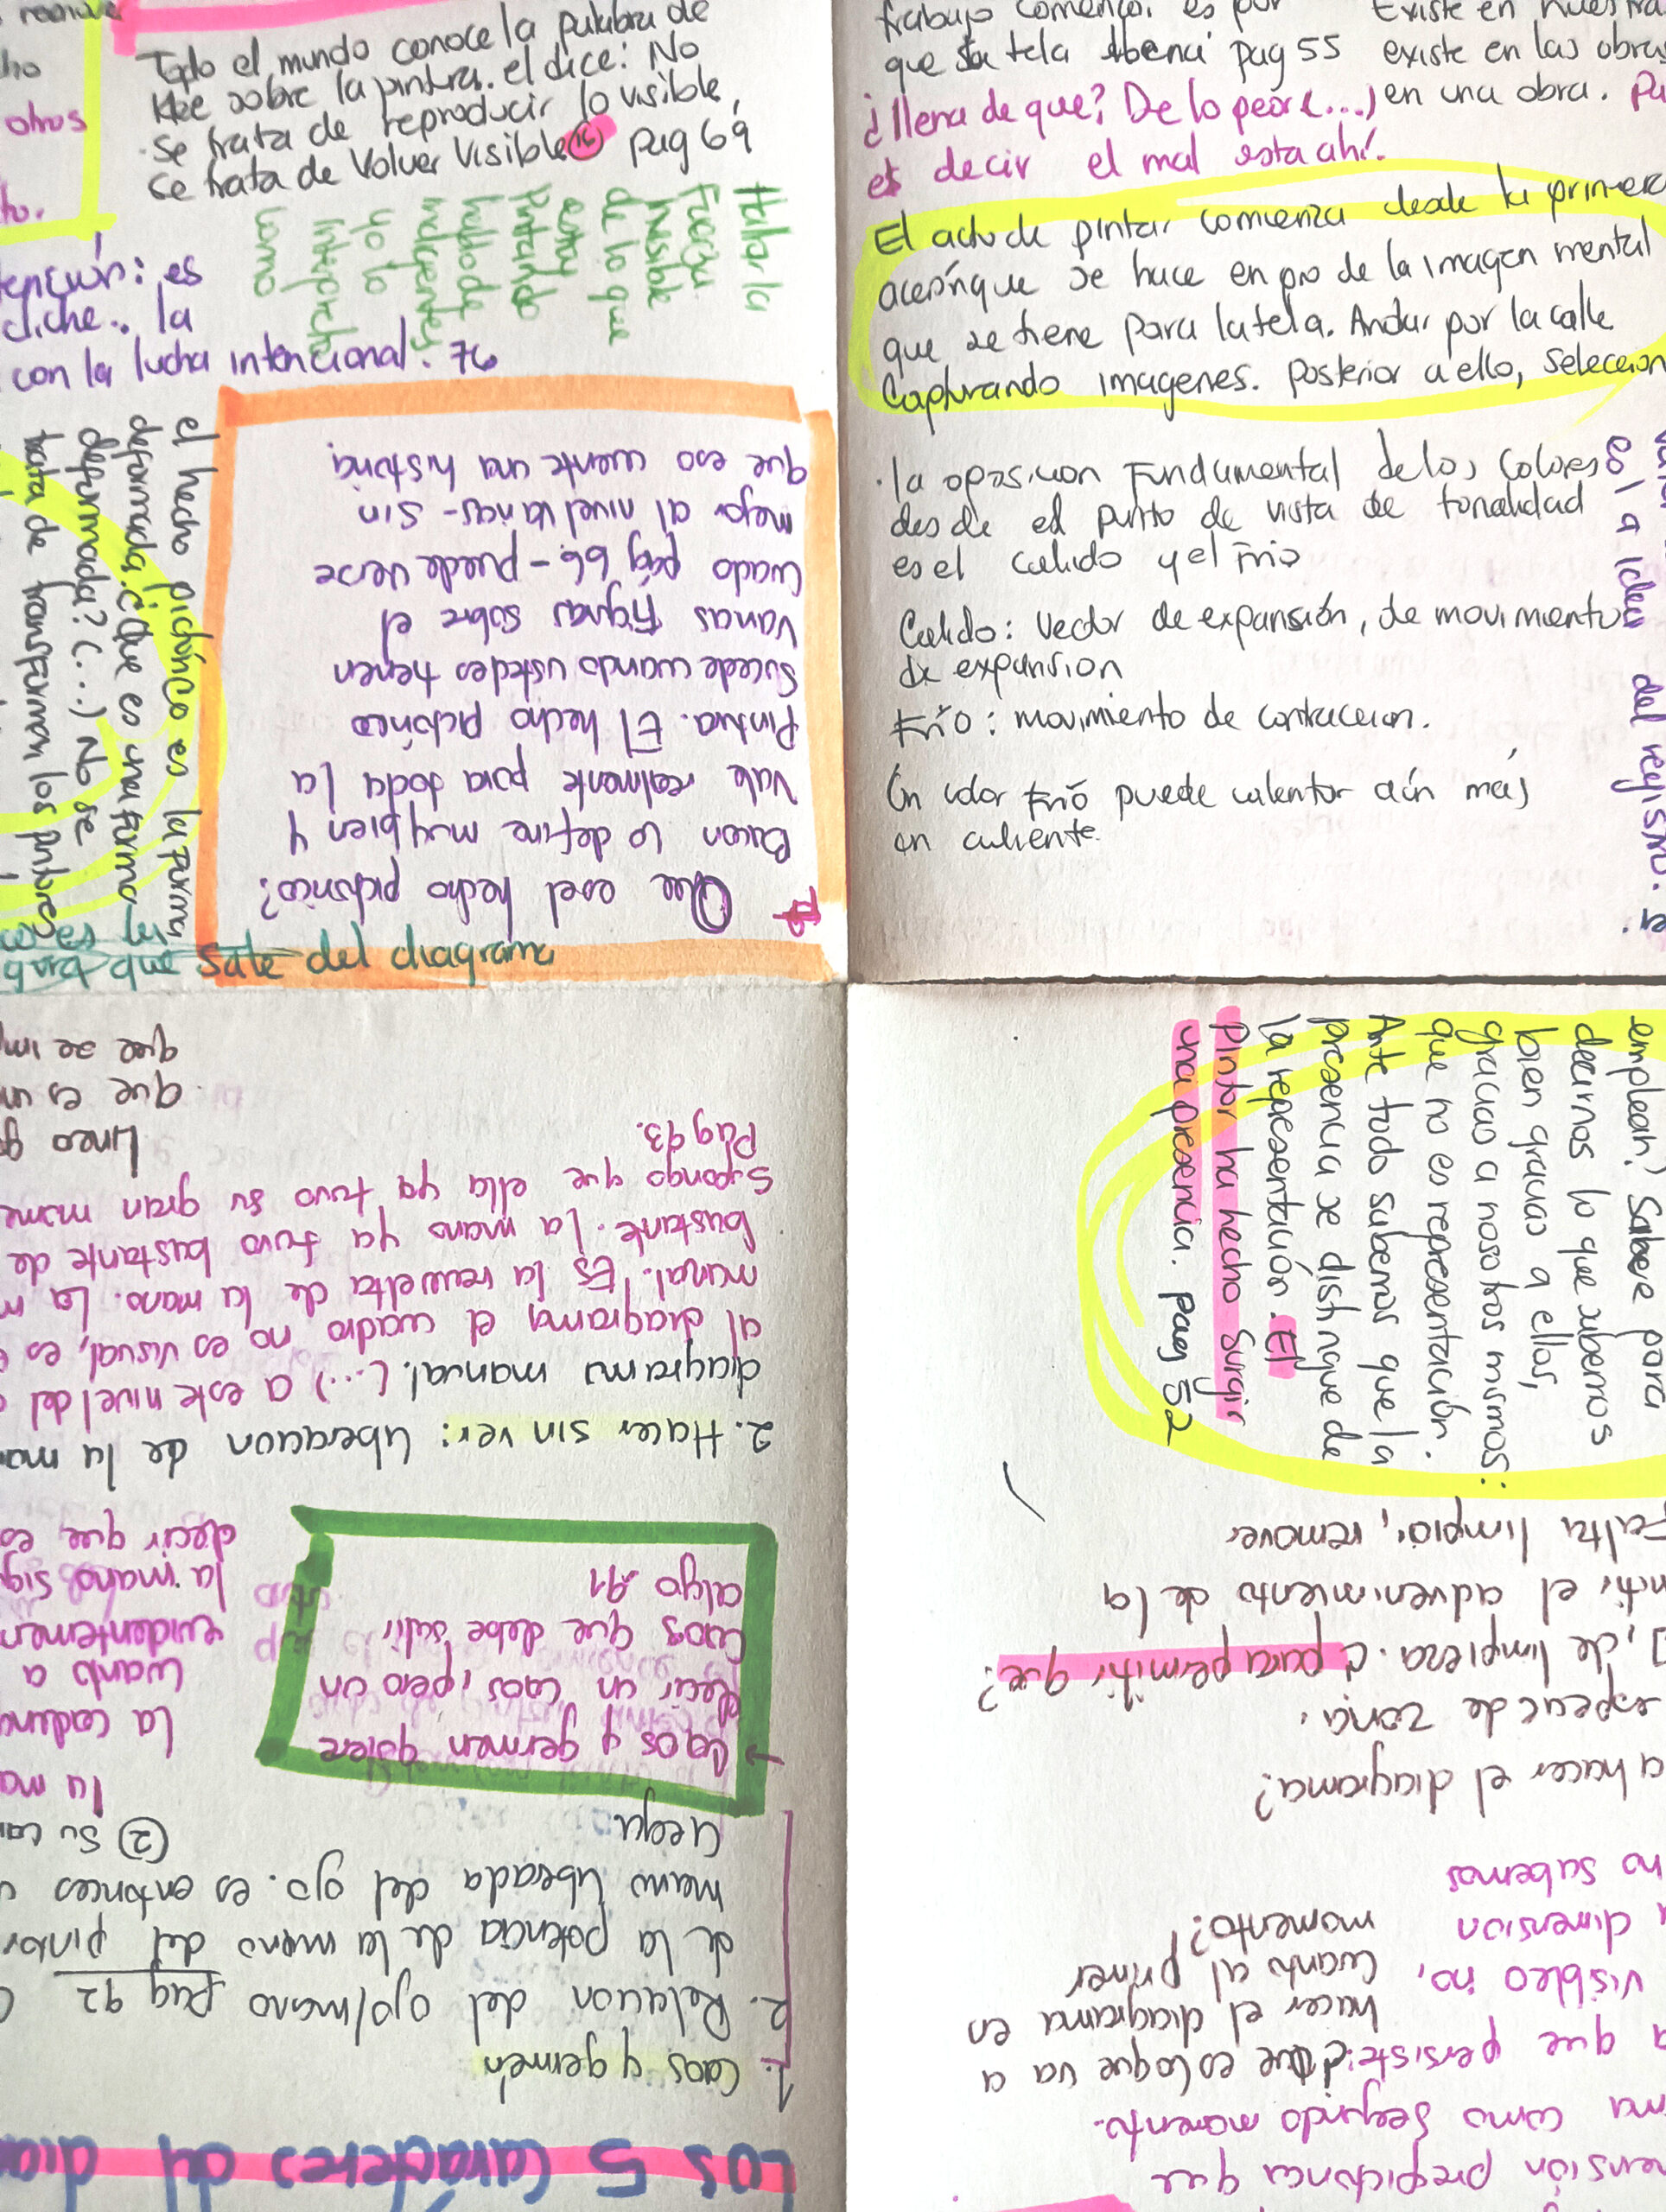 Todo el mundo conoce la palabra de
Klee sobre la pintura. el dice: No
se trata de reproducir lo visible,
se trata de volver visible (15) pag 69
Hablar la
Fuerza
invisible
de lo que
estoy
pintando
hablo de
imagenes
yo lo
como
ención: es
cliche.. la
con la lucha intencional. 76
el hecho pictórico es la forma
deformada. ¿Que es una forma
deformada? (...) No se
trata de transformar los pintores
Que es el hecho pictorico?
Bacon lo define muy bien y
vale realmente para toda la
Pintura. El hecho pictórico
sucede cuando ustedes tienen
varias Figuras sobre el
cuado pág 66 - puede verse
mejor al nivel varias - sin
que eso cuente una historia
que sale del diagrama
trabajo comenzó, es por
que su tela
pag 55
¿llena de que? De lo peor (...)
es decir el mal esta ahí.
Existe en nuestra
existe en las obras
en una obra.
El acto de pintar comienza desde la primera
que se hace en pro de la imagen mental
que se tiene para la tela. Andar por la calle
Capturando imagenes. Posterior a ello, seleccion
. la oposicion Fundamental de los colores
desde el punto de vista de tonalidad
es el calido y el Frio
Calido: Vector de expansión, de movimiento
de expansion
Frio: movimiento de contraccion.
Un color Frio puede calentar aún más
un caliente.
es la idea del registro.
emplean? Sabese para
decirnos lo que sabemos
bien gracias a ellos,
gracias a nosotros mismos:
que no es representación.
Ante todo sabemos que la
presencia se distingue de
la representación. El
Pintor ha hecho Surgir
una presencia. pag 52
Los 5 Caracteres del
1. Caos y germen
2. Relación del ojo/mano pag 92
de la potencia de la mano del pintor
mano liberada del ojo. es entonces
ciega
→ Caos y germen quiere
decir un caos, pero un
Caos que debe salir
algo 91
2. Hacer sin ver: liberacion de la
diagrama manual. (...) a este nivel del
al diagrama el cuadro no es visual, es
manual. Es la revuelta de la mano. La
bastante. La mano ya tuvo bastante de
Supongo que ella ya tuvo su gran
Pag 93.
Linea
que es un
que se
② Su
la
la
cuanto a
la mano
decir que es
que
como segundo momento.
que persiste: ¿Que es lo que va a
hacer el diagrama en
cuanto al primer
momento?
dimension
no sabemos
a hacer el diagrama?
de zona,
, de limpieza. ¿para permitir que?
el advenimiento de la
limpiar, remover